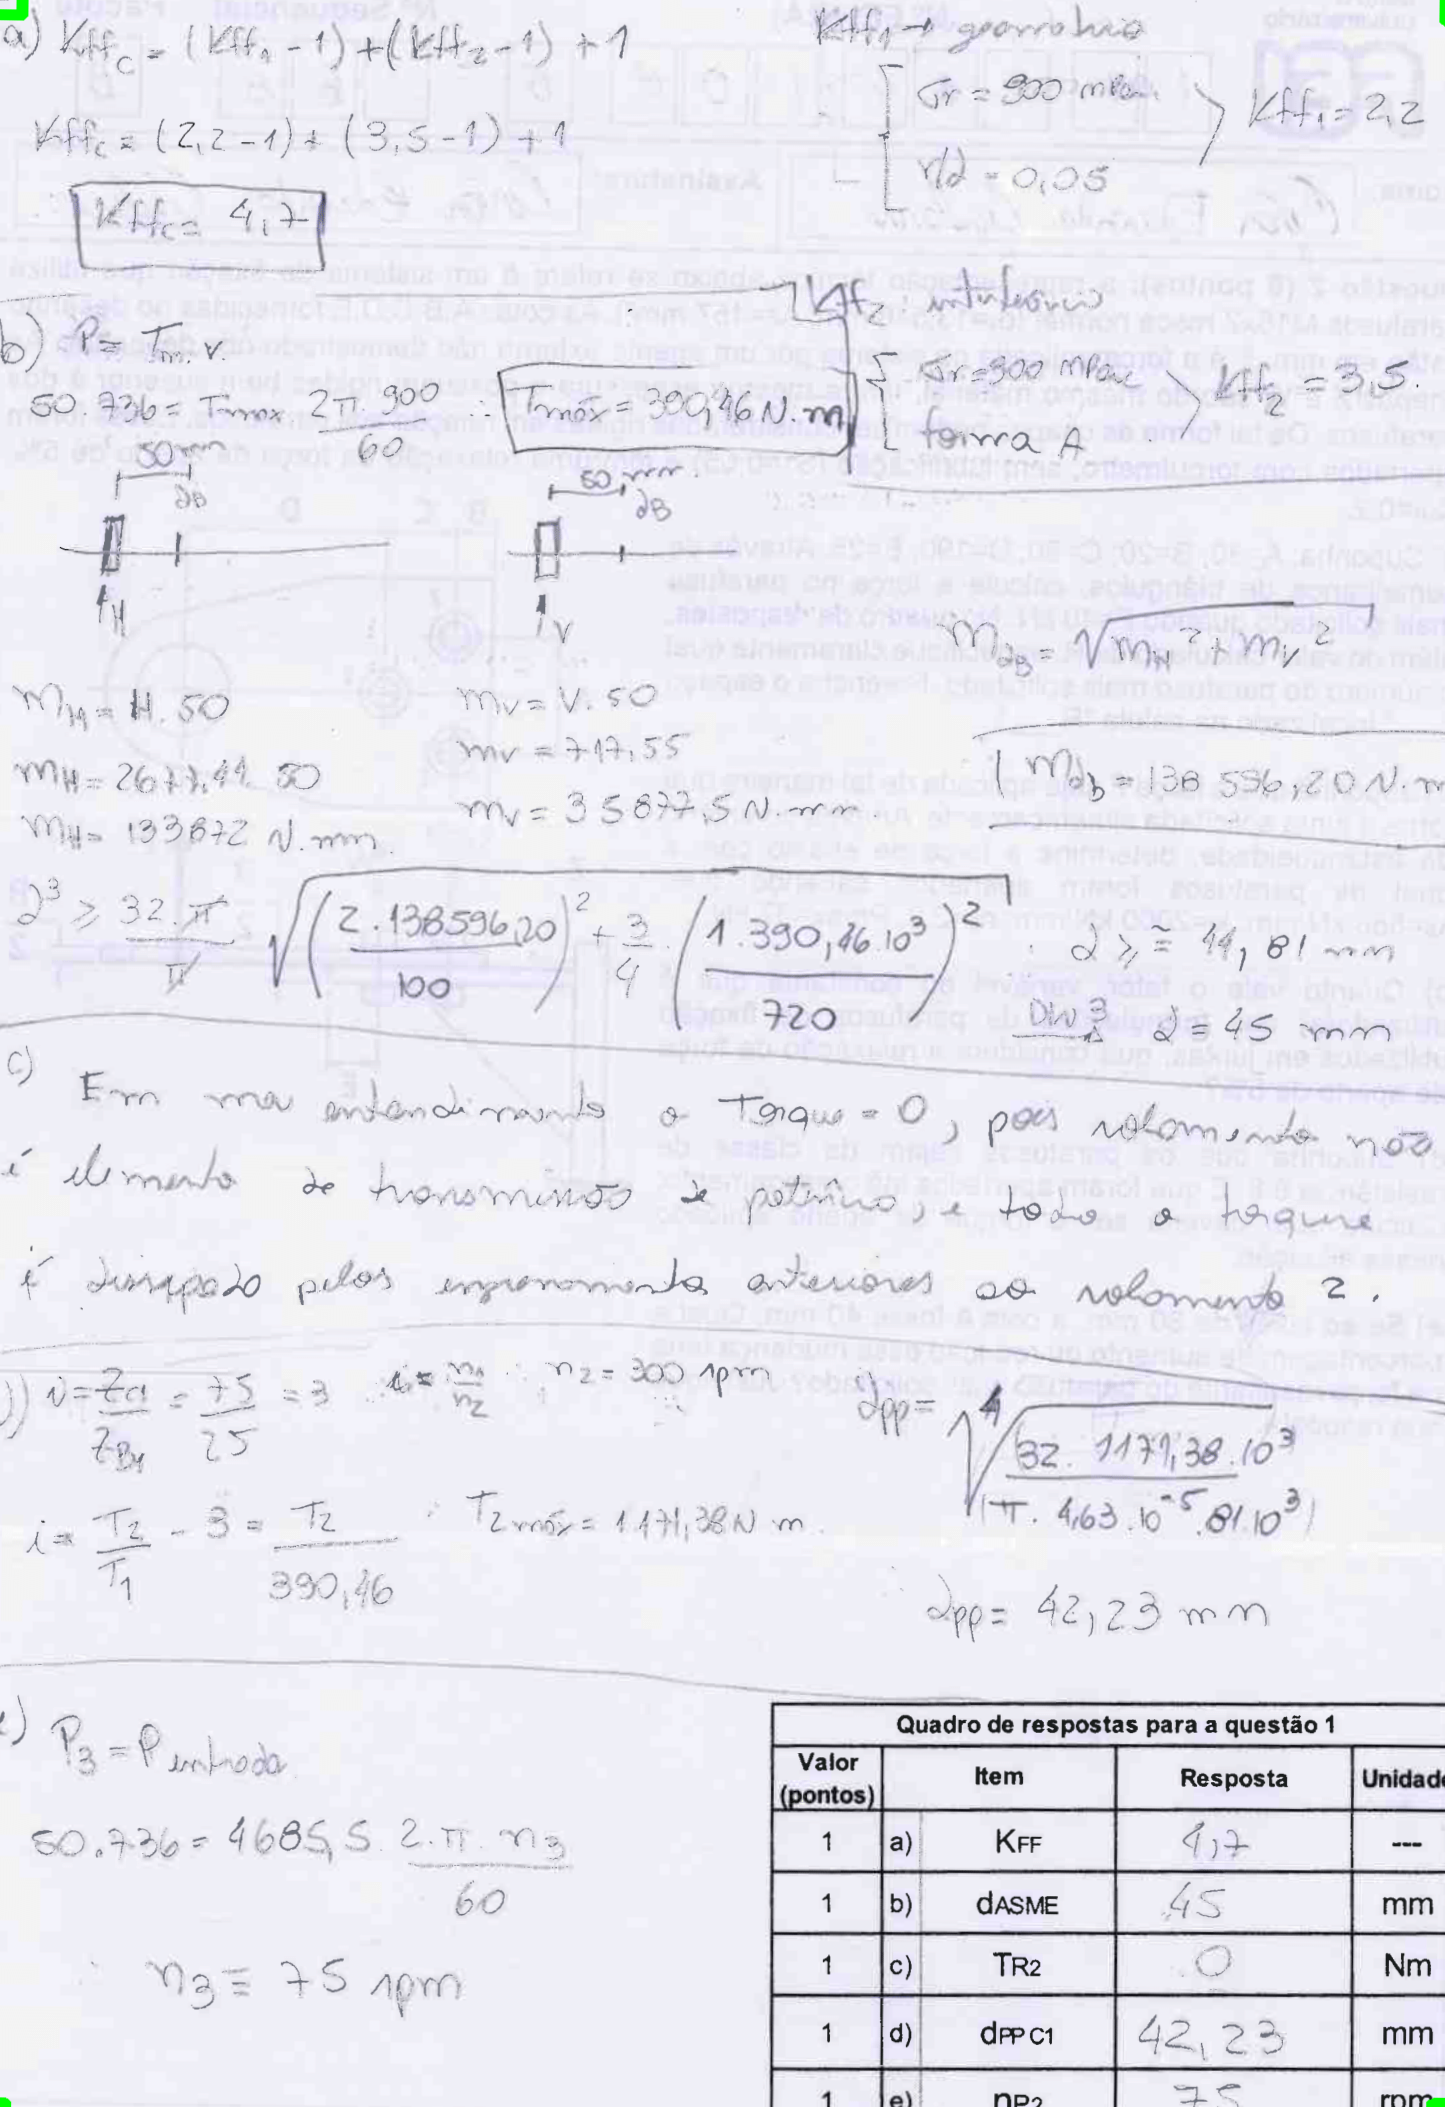 a) Kff_c = (Kff_1 - 1) + (Kff_2 - 1) + 1
Kff_c = (2,2 - 1) + (3,5 - 1) + 1
Kff_c = 4,7
Kff_1 → geometria
σr = 900 mPa
r/d = 0,05
Kff_1 = 2,2
Kff_2: interferência
σr = 900 mPa
forma A
Kff_2 = 3,5.
b) P = Tm. v.
50.736 = Tmáx 2π 900 / 60 ∴ Tmáx = 390,46 N.m
50 mm
dB
H
50 mm.
dB
V
m_H = H. 50
m_H = 2677,44. 50
m_H = 133872 N.mm.
m_V = V. 50
m_V = 717,55
m_V = 35877,5 N.mm
m_dB = √(m_H² + m_V²)
m_db = 138 596,20 N.m
d³ ≥ 32 π / π √((2.138596,20 / 100)² + 3/4 . (1.390,46.10³ / 720)²) ∴ d ≥ ≈ 44,81 mm
DIN 3 d = 45 mm
c) Em meu entendimento o Torque = 0, pois rolamento não
é elemento de transmissão de potência, e todo o torque
é dissipado pelos engrenamentos anteriores ao rolamento 2.
d) i = Zc1 / ZB1 = 75 / 25 = 3 i = n1 / n2 ∴ n2 = 300 rpm
i = T2 / T1 - 3 = T2 / 390,46 ∴ T2 máx = 1.171,38 N m.
dpp = ⁴√(32. 1171,38.10³ / π. 4,63.10⁻⁵.81.10³)
dpp = 42,23 mm
e) P3 = P entrada
50.736 = 4685,5. 2.π. n3 / 60
∴ n3 = 75 rpm
Quadro de respostas para a questão 1
Valor (pontos) Item Resposta Unidade
1 a) KFF 4,7 ---
1 b) dASME 45 mm
1 c) TR2 0 Nm
1 d) dPP C1 42,23 mm
1 e) nP2 75 rpm